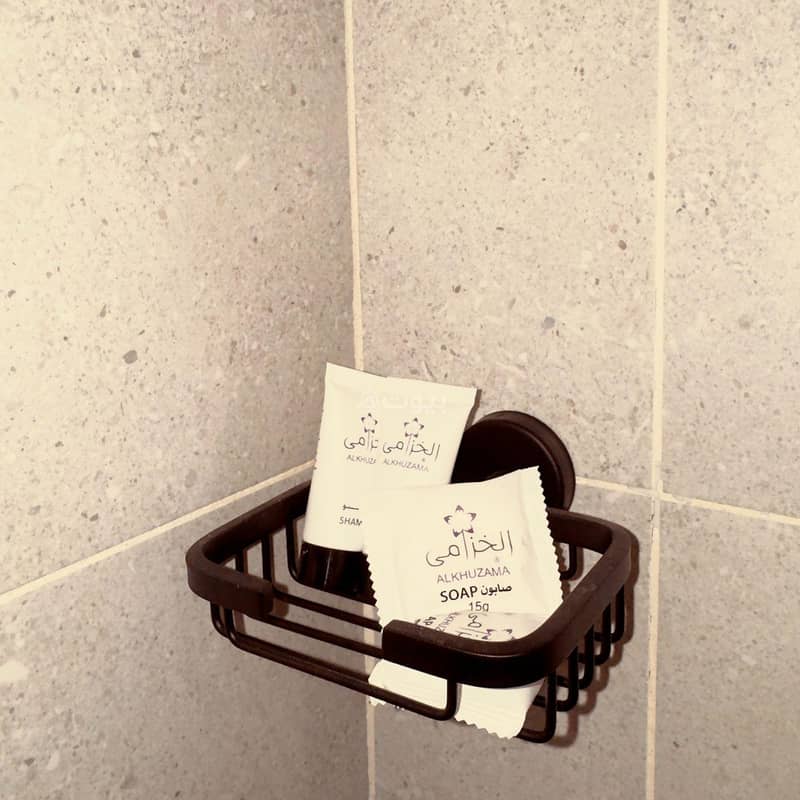 بيوت
الخزامى
ALKHUZAMA
SHAM
الخزامى
ALKHUZAMA
SOAP صابون
15g